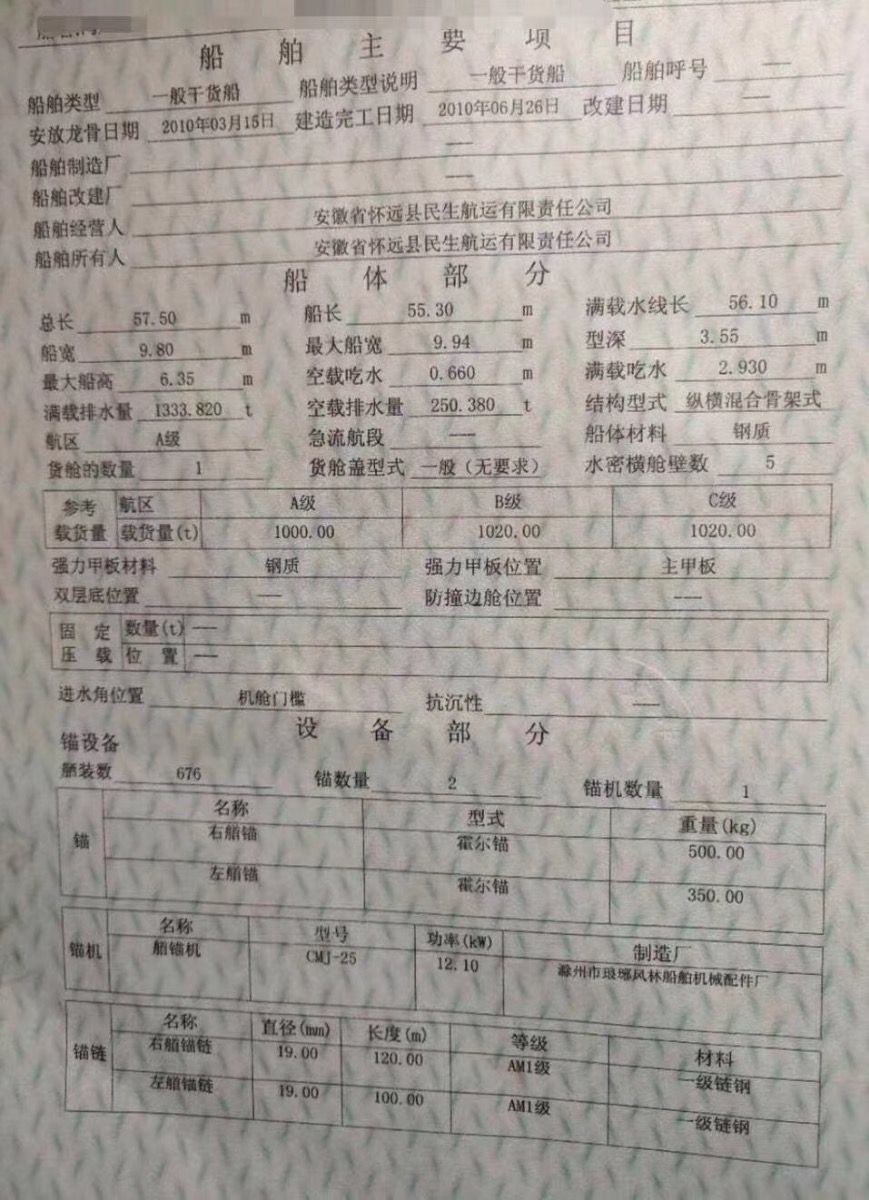 船舶主要项目
船舶类型 一般干货船 船舶类型说明 一般干货船 船舶呼号 ---
安放龙骨日期 2010年03月15日 建造完工日期 2010年06月26日 改建日期 ---
船舶制造厂 ---
船舶改建厂 ---
船舶经营人 安徽省怀远县民生航运有限责任公司
船舶所有人 安徽省怀远县民生航运有限责任公司
船体部分
总长 57.50 m 船长 55.30 m 满载水线长 56.10 m
船宽 9.80 m 最大船宽 9.94 m 型深 3.55 m
最大船高 6.35 m 空载吃水 0.660 m 满载吃水 2.930 m
满载排水量 1333.820 t 空载排水量 250.380 t 结构型式 纵横混合骨架式
航区 A级 急流航段 --- 船体材料 钢质
货舱的数量 1 货舱盖型式 一般（无要求） 水密横舱壁数 5
参考 航区 A级 B级 C级
载货量 载货量(t) 1000.00 1020.00 1020.00
强力甲板材料 钢质 强力甲板位置 主甲板
双层底位置 --- 防撞边舱位置 ---
固定 数量(t) ---
压载 位置 ---
进水角位置 机舱门槛 抗沉性 ---
设备部分
锚设备
舾装数 676 锚数量 2 锚机数量 1
锚 名称 型式 重量(kg)
右艏锚 霍尔锚 500.00
左艏锚 霍尔锚 350.00
锚机 名称 型号 功率(kW) 制造厂
艏锚机 CMJ-25 12.10 滁州市琅琊风林船舶机械配件厂
锚链 名称 直径(mm) 长度(m) 等级 材料
右艏锚链 19.00 120.00 AM1级 一级链钢
左艏锚链 19.00 100.00 AM1级 一级链钢